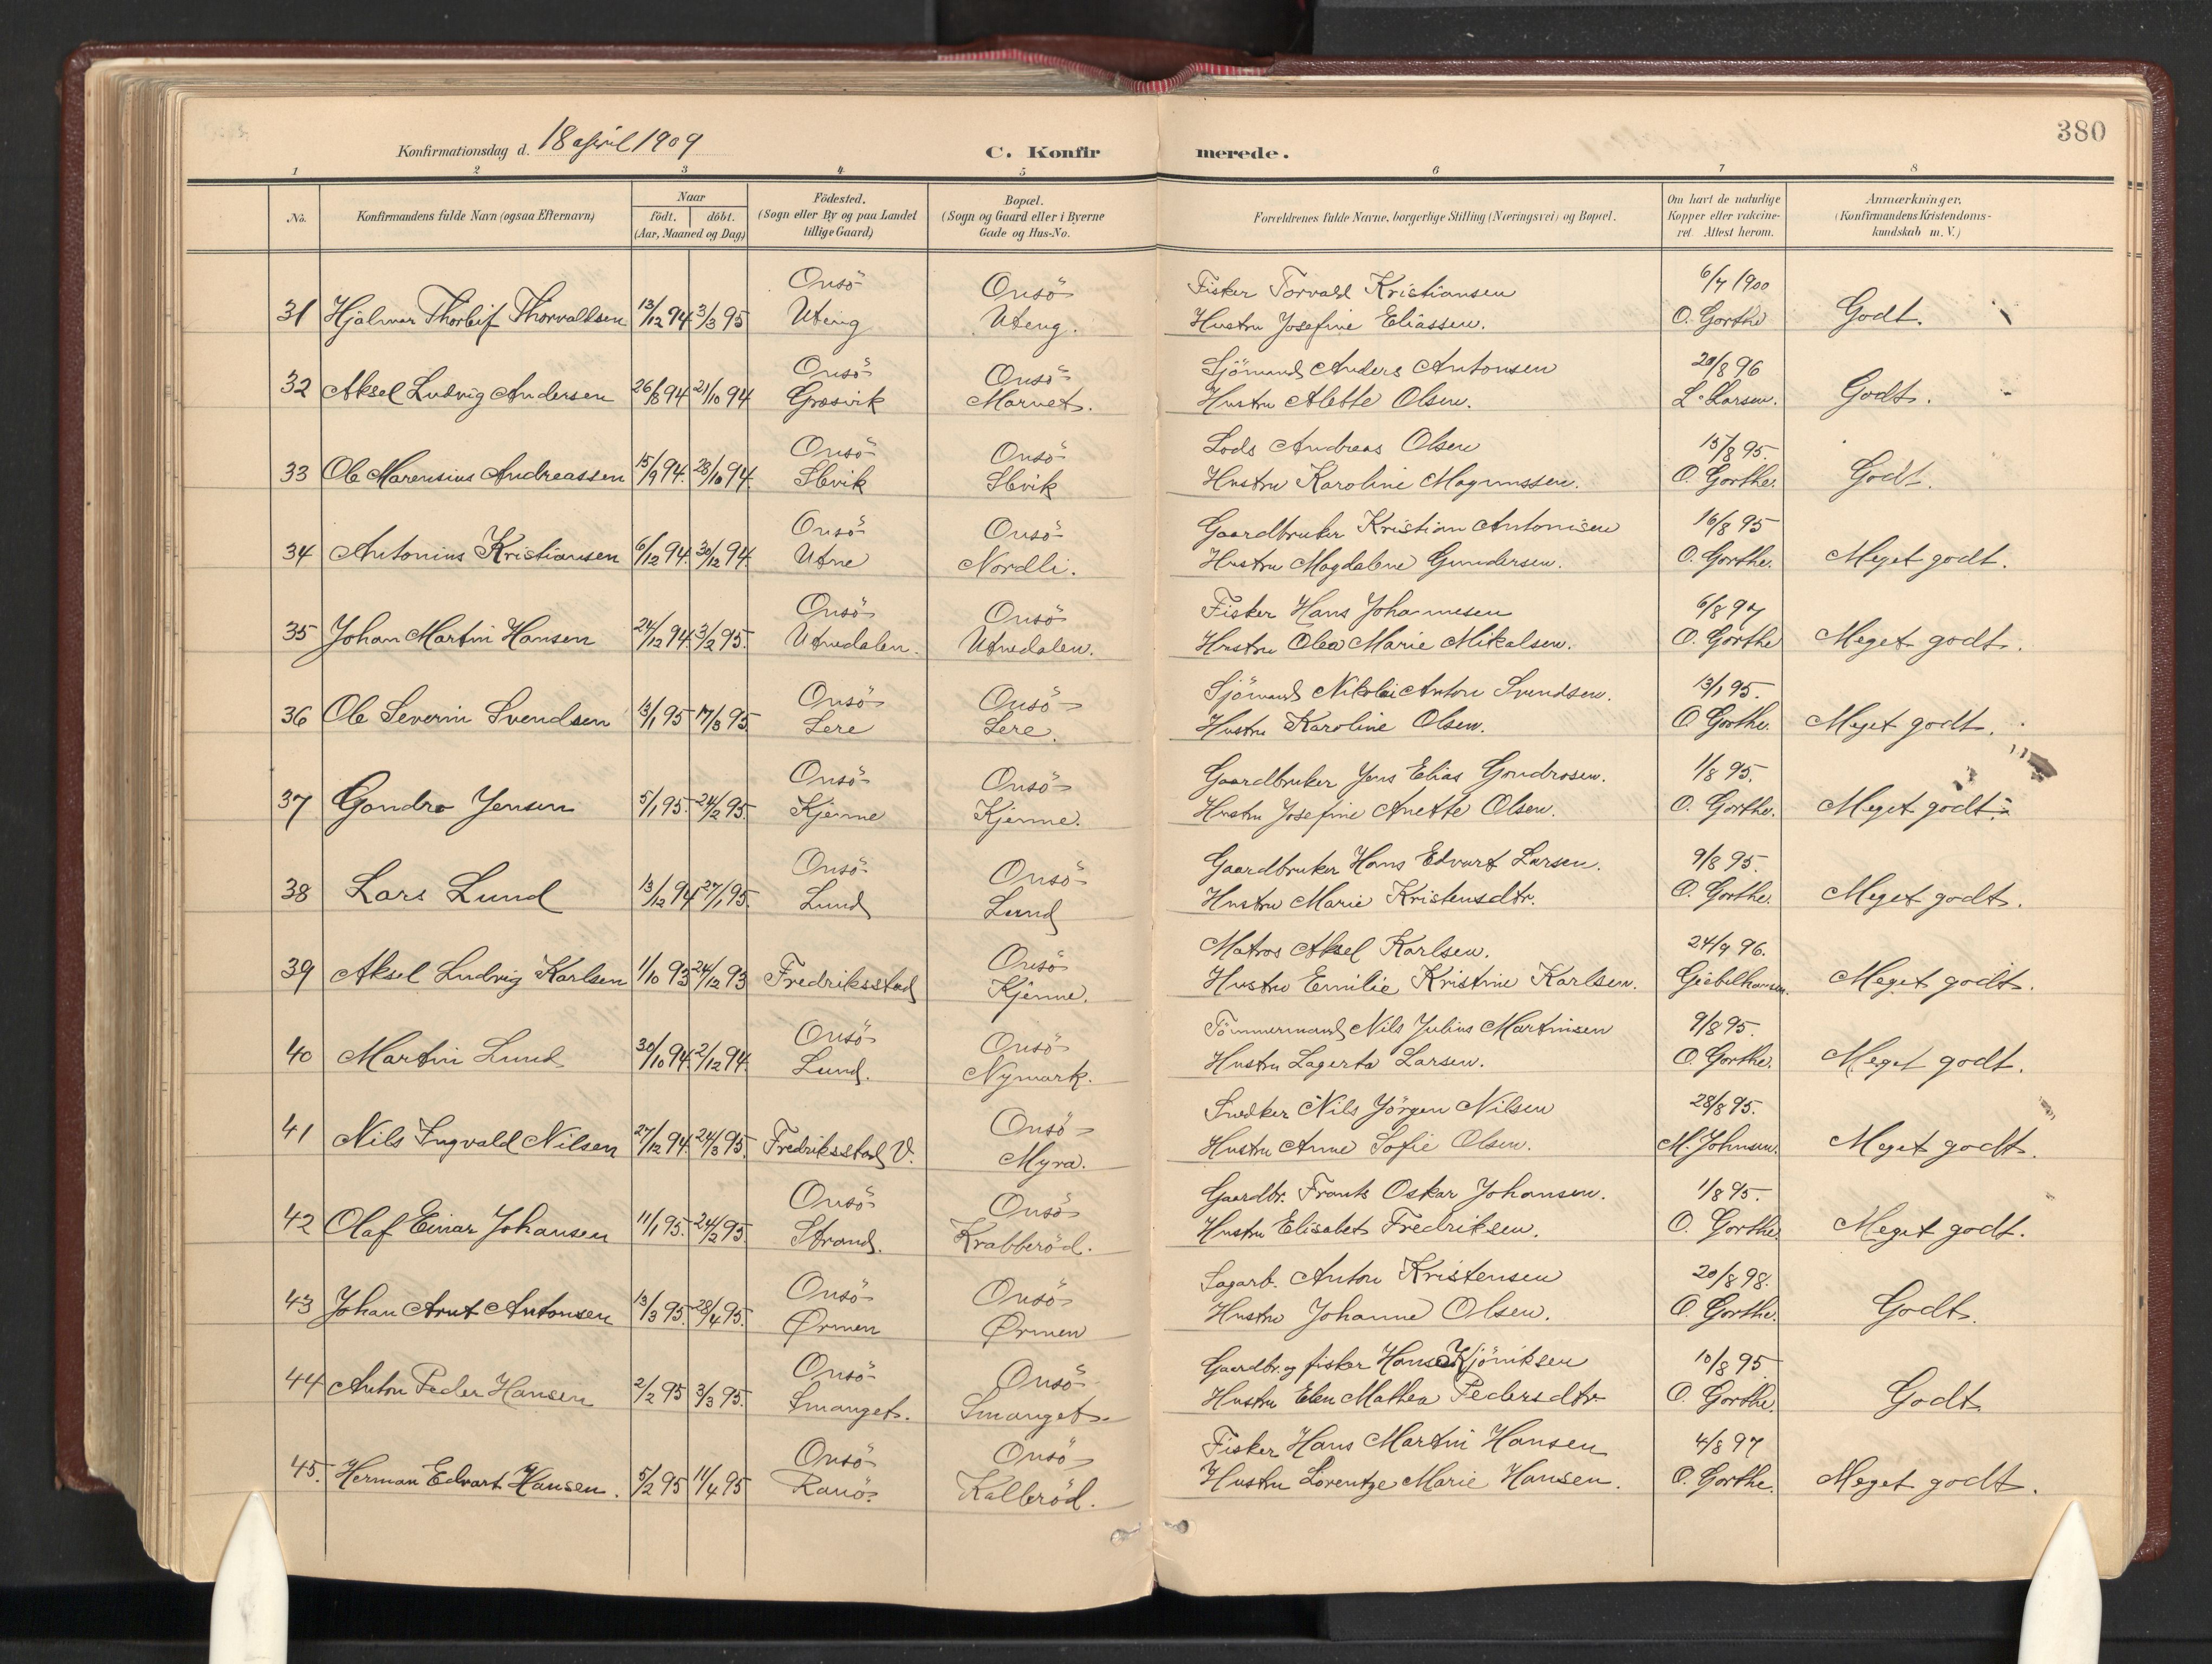 380
Konfirmationsdag d. 18 april 1909 C. Konfirmerede.
1 2 3 4 5 6 7 8
No. Konfirmandens fulde Navn (ogsaa Efternavn) Naar født. døbt. (Aar, Maaned og Dag) Födested. (Sogn eller By og paa Landet tillige Gaard) Bopæl. (Sogn og Gaard eller i Byerne Gade og Hus-No. Forældrenes fulde Navne, borgerlige Stilling (Næringsvei) og Bopæl. Om havt de naturlige Kopper eller vakcineret. Attest herom. Anmærkninger. (Konfirmandens Kristendomskundskab m. V.)
Onsö Onsö Fisker Torvald Kristiansen 6/7 1900
31 Hjalmar Thorleif Thorvaldsen 13/12 94 3/3 95 Uteng Uteng. Hustru Josefine Eliassen. O. Gorthe Godt.
Onsö Onsö Sjömand Anders Antonsen 20/8 96
32 Aksel Ludvig Andersen 26/8 94 21/10 94 Græsvik Marnet. Hustru Alette Olsen. L. Larsen. Godt.
Onsö Onsö Lods Andreas Olsen 15/8 95.
33 Ole Marensius Andreassen 15/9 94. 28/10 94. Slevik Slevik Hustru Karoline Magnussen. O. Gorthe. Godt.
Onsö Onsö Gaardbruker Kristian Antonisen 16/8 95
34 Antonius Kristiansen 6/12 94. 30/12 94. Utne Nordli. Hustru Magdalene Gundersen. O. Gorthe. Meget godt.
Onsö Onsö Fisker Hans Johannesen 6/8 97
35 Johan Martin Hansen 24/12 94. 3/2 95. Utnedalen. Utnedalen. Hustru Olea Marie Mikalsen. O. Gorthe Meget godt.
Onsö Onsö Sjömand Nikolai Anton Svendsen. 13/1 95.
36 Ole Severin Svendsen 13/1 95 17/3 95. Lere Lere. Hustru Karoline Olsen. O Gorthe. Meget godt.
Onsö Onsö Gaardbruker Jens Elias Gondrosen. 1/8 95.
37 Gondro Jensen 5/1 95. 24/2 95. Kjenne Kjenne. Hustru Josefine Anette Olsen. O. Gorthe. Meget godt.
Onsö Onsö Gaardbruker Hans Edvart Larsen. 9/8 95.
38 Lars Lund 13/12 94 27/1 95. Lund Lund Hustru Marie Kristensdtr. O. Gorthe. Meget godt.
Onsö Matros Aksel Karlsen. 24/9 96.
39 Aksel Ludvig Karlsen 1/10 93 24/12 93 Fredriksstad Kjenne. Hustru Emilie Kristine Karlsen. Giebelhausen. Meget godt.
Onsö Onsö Tömmermand Nils Julius Martinsen 9/8 95.
40 Martin Lund 30/10 94. 2/12 94. Lund. Nymark. Hustru Lagerta Larsen. O. Gorthe. Meget godt.
Onsö Snedker Nils Jörgen Nilsen 28/8 95.
41 Nils Ingvald Nilsen 27/12 94. 24/3 95. Fredriksstad V. Myra. Hustru Anne Sofie Olsen. M. Johnsen. Meget godt.
Onsö Onsö Gaardbr. Frants Oskar Johansen. 1/8 95.
42 Olaf Einar Johansen 11/1 95. 24/2 95. Strand. Krabberöd. Hustru Elisabet Fredriksen. O. Gorthe. Meget godt.
Onsö Onsö Sagarb. Anton Kristensen 20/8 98.
43 Johan Arnt Antonsen 13/3 95. 28/4 95. Ørmen Ørmen Hustru Johanne Olsen. O. Gorthe. Godt.
Onsö Onsö Gaardbr. og fisker Hans Kjöniksen 10/8 95
44 Anton Peder Hansen 2/2 95 3/3 95. Smauget. Smauget. Hustru Elen Mathea Pedersdtr. O. Gorthe. Godt
Onsö Onsö Fisker Hans Martin Hansen 4/8 97
45. Herman Edvart Hansen. 5/2 95 11/4 95 Rauö. Kalleröd. Hustru Lorentze Marie Hansen. O. Gorthe. Meget godt.